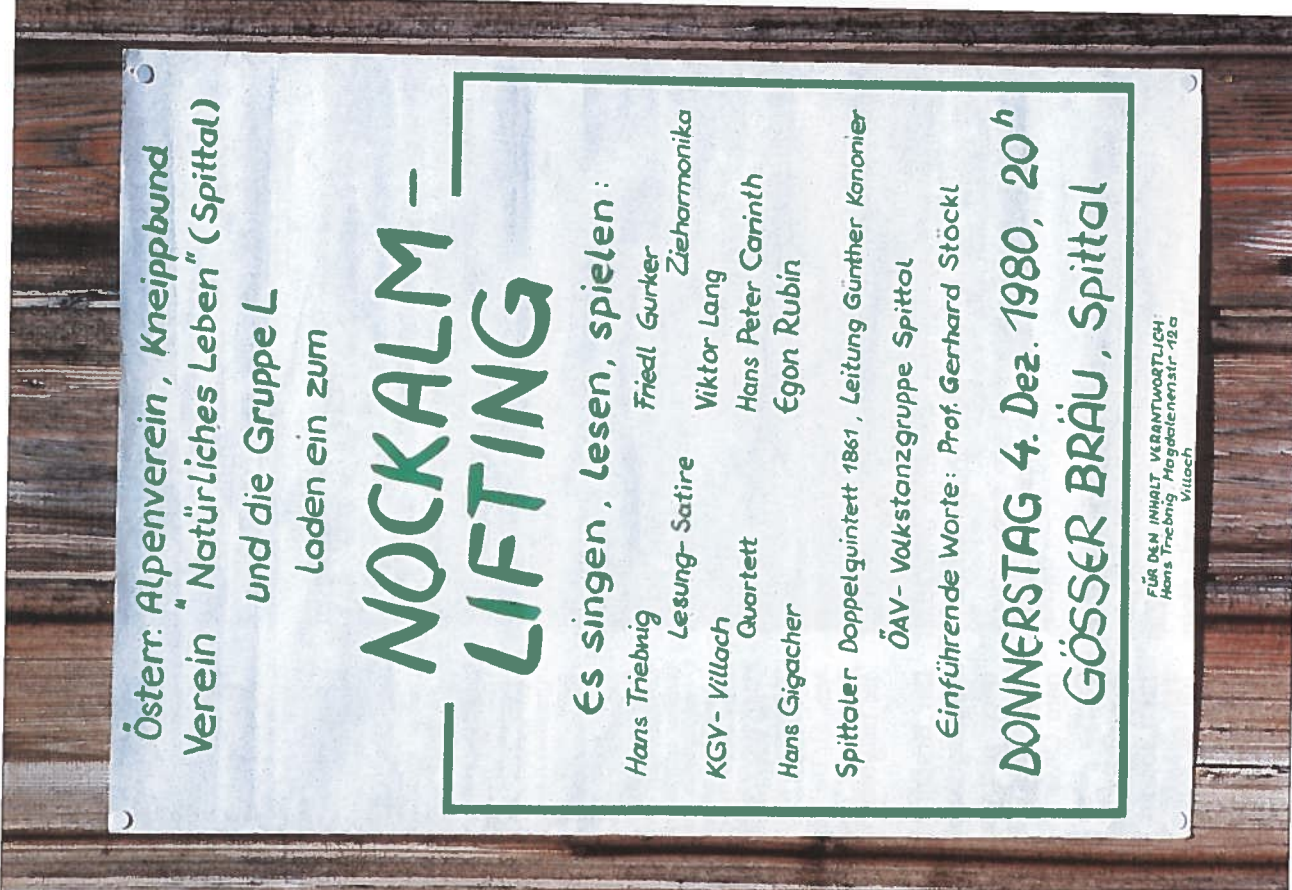 Österr. Alpenverein, Kneippbund
Verein "Natürliches Leben" (Spittal)
und die Gruppe L
laden ein zum
NOCKALM-
LIFTING
Es singen, lesen, spielen:
Hans Triebnig Friedl Gurker
Lesung-Satire Ziehharmonika
KGV-Villach Viktor Lang
Quartett Hans Peter Carinth
Hans Gigacher Egon Rubin
Spittaler Doppelquintett 1861, Leitung Günther Kanonier
ÖAV-Volkstanzgruppe Spittal
Einführende Worte: Prof. Gerhard Stöckl
DONNERSTAG 4. Dez. 1980, 20h
GÖSSER BRÄU, Spittal
FÜR DEN INHALT VERANTWORTLICH:
Hans Triebnig, Magdalenenstr 12a
Villach